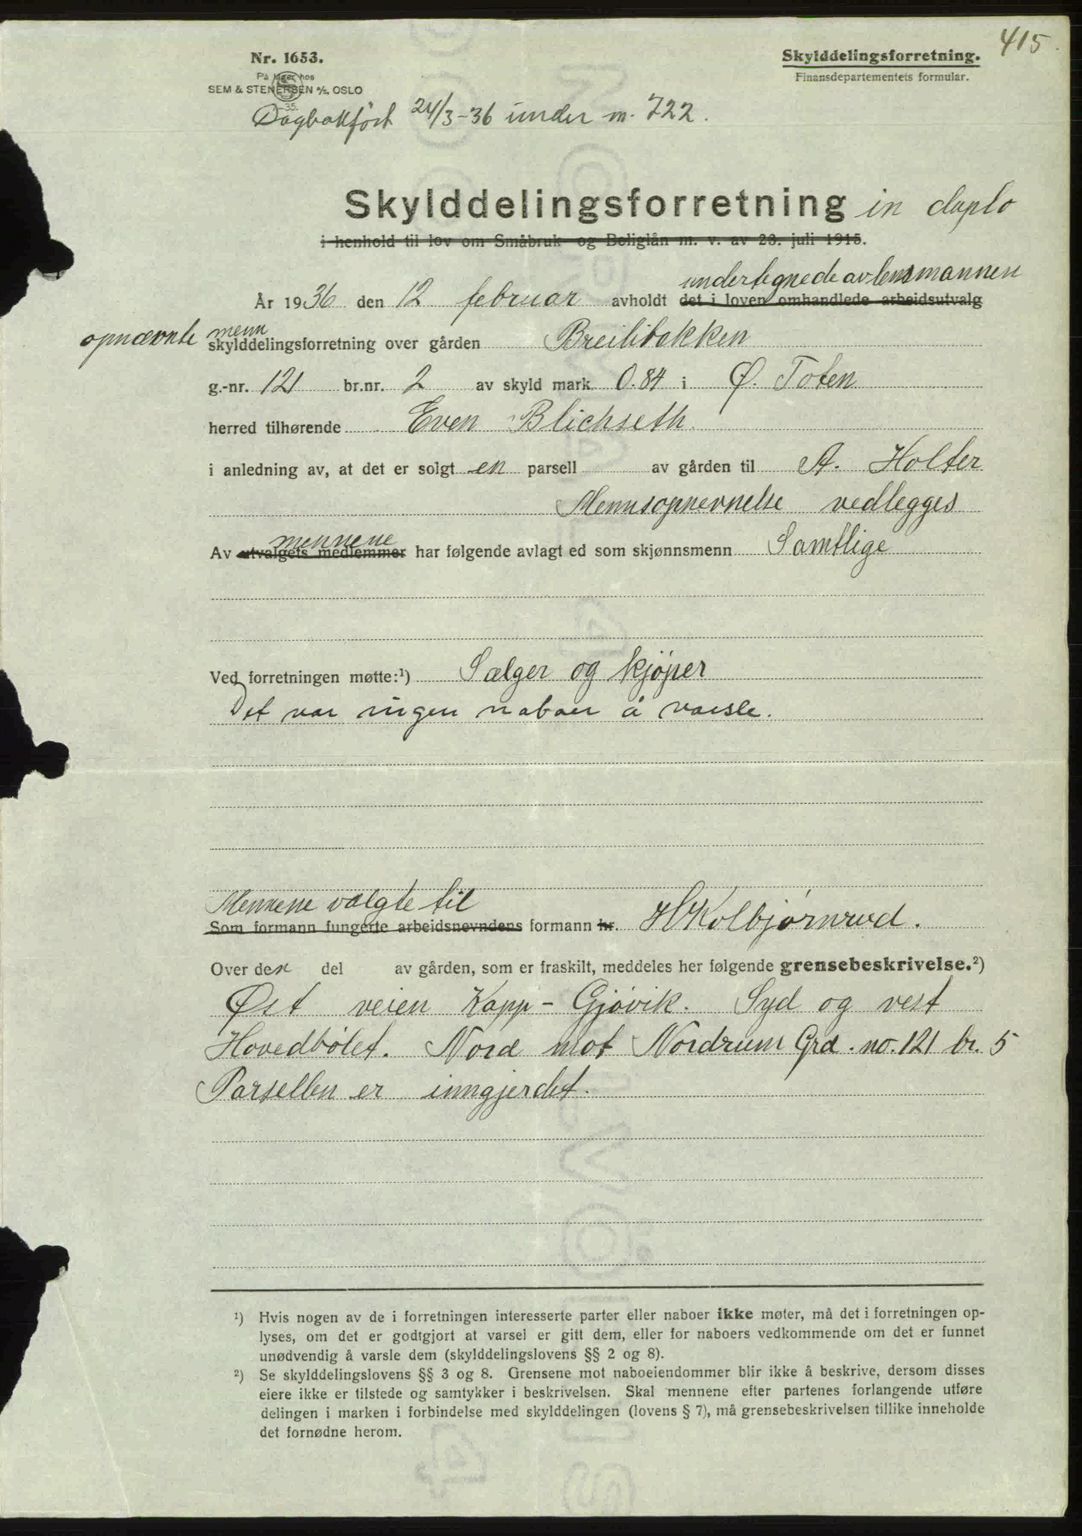 415.
Nr. 1653.
Skylddelingsforretning.
På lager hos
Finansdepartementets formular.
SEM & STENERSEN A/S, OSLO
35.
Dagbokført 24/3-36 under nr. 722.
Skylddelingsforretning in duplo
i henhold til lov om Småbruk og Boliglån m. v. av 23. juli 1915.
undertegnede av lensmannen
År 1936 den 12 februar avholdt det i loven omhandlede arbeidsutvalg
opnævnte menn
skylddelingsforretning over gården Breilibakken
g.-nr. 121 br.nr. 2 av skyld mark 0.84 i Ø. Toten
herred tilhørende Even Blichseth
i anledning av, at det er solgt en parsell av gården til A. Holter
Mennsopnevnelse vedlegges
mennene
Av utvalgets medlemmer har følgende avlagt ed som skjønnsmenn Samtlige
Ved forretningen møtte:¹) Sælger og kjøper
Det var ingen naboer å varsle.
Mennene valgte til
Som formann fungerte arbeidsnevndens formann hr. H Kolbjørnrud.
Over den del av gården, som er fraskilt, meddeles her følgende grensebeskrivelse.²)
Øst veien Kapp - Gjøvik. Syd og vest
Hovedbølet. Nord mot Nordrum Grd. no. 121 br. 5
Parsellen er inngjerdet.
¹) Hvis nogen av de i forretningen interesserte parter eller naboer ikke møter, må det i forretningen op-
lyses, om det er godtgjort at varsel er gitt dem, eller for naboers vedkommende om det er funnet
unødvendig å varsle dem (skylddelingslovens §§ 2 og 8).
²) Se skylddelingslovens §§ 3 og 8. Grensene mot naboeiendommer blir ikke å beskrive, dersom disses
eiere ikke er tilstede og samtykker i beskrivelsen. Skal mennene efter partenes forlangende utføre
delingen i marken i forbindelse med skylddelingen (lovens § 7), må grensebeskrivelsen tillike inneholde
det fornødne herom.